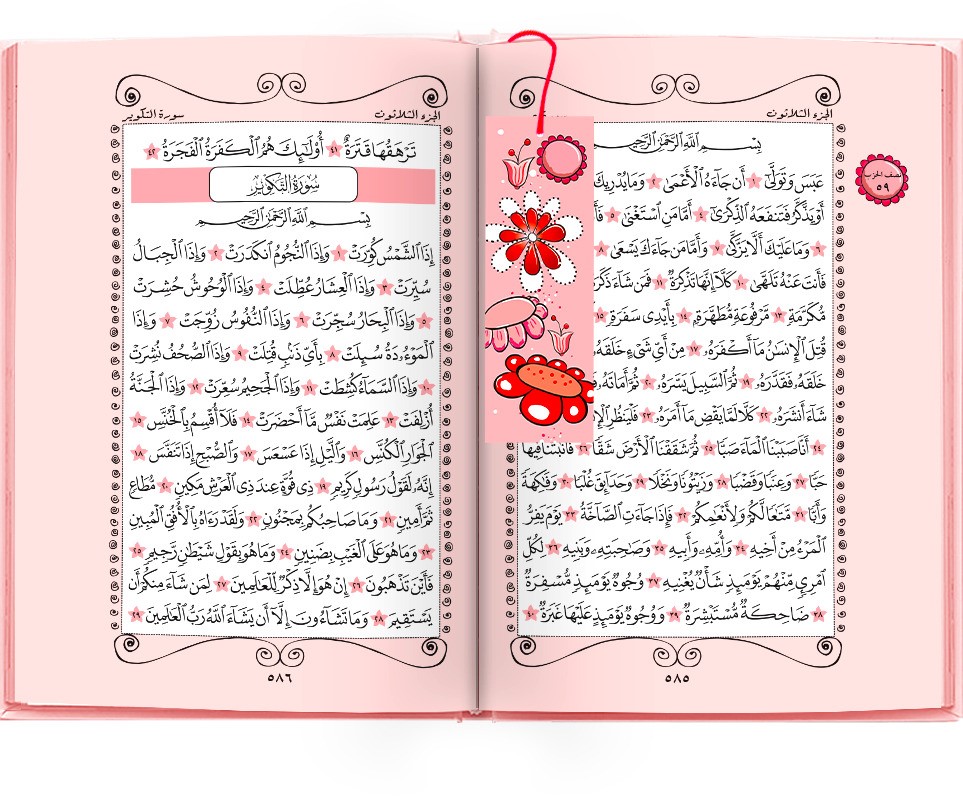 الجزء الثلاثون
نصف الحزب
٥٩
بِسْمِ ٱللَّهِ ٱلرَّحْمَٰنِ ٱلرَّحِيمِ
عَبَسَ وَتَوَلَّىٰٓ ١ أَن جَآءَهُ ٱلْأَعْمَىٰ ٢ وَمَا يُدْرِيكَ
أَوْ يَذَّكَّرُ فَتَنفَعَهُ ٱلذِّكْرَىٰٓ ٤ أَمَّا مَنِ ٱسْتَغْنَىٰ ٥
٦ وَمَا عَلَيْكَ أَلَّا يَزَّكَّىٰ ٧ وَأَمَّا مَن جَآءَكَ يَسْعَىٰ ٨
فَأَنتَ عَنْهُ تَلَهَّىٰ ١٠ كَلَّآ إِنَّهَا تَذْكِرَةٌ ١١ فَمَن شَآءَ ذَكَرَ
مُّكَرَّمَةٍ ١٣ مَّرْفُوعَةٍ مُّطَهَّرَةٍۭ ١٤ بِأَيْدِى سَفَرَةٍ ١٥
قُتِلَ ٱلْإِنسَٰنُ مَآ أَكْفَرَهُۥ ١٧ مِنْ أَىِّ شَىْءٍ خَلَقَهُۥ
خَلَقَهُۥ فَقَدَّرَهُۥ ١٩ ثُمَّ ٱلسَّبِيلَ يَسَّرَهُۥ ٢٠ ثُمَّ أَمَاتَهُۥ
شَآءَ أَنشَرَهُۥ ٢٢ كَلَّا لَمَّا يَقْضِ مَآ أَمَرَهُۥ ٢٣ فَلْيَنظُرِ
٢٤ أَنَّا صَبَبْنَا ٱلْمَآءَ صَبًّا ٢٥ ثُمَّ شَقَقْنَا ٱلْأَرْضَ شَقًّا ٢٦ فَأَنۢبَتْنَا فِيهَا
حَبًّا ٢٧ وَعِنَبًا وَقَضْبًا ٢٨ وَزَيْتُونًا وَنَخْلًا ٢٩ وَحَدَآئِقَ غُلْبًا ٣٠ وَفَٰكِهَةً
وَأَبًّا ٣١ مَّتَٰعًا لَّكُمْ وَلِأَنْعَٰمِكُمْ ٣٢ فَإِذَا جَآءَتِ ٱلصَّآخَّةُ ٣٣ يَوْمَ يَفِرُّ
ٱلْمَرْءُ مِنْ أَخِيهِ ٣٤ وَأُمِّهِۦ وَأَبِيهِ ٣٥ وَصَٰحِبَتِهِۦ وَبَنِيهِ ٣٦ لِكُلِّ
ٱمْرِئٍ مِّنْهُمْ يَوْمَئِذٍ شَأْنٌ يُغْنِيهِ ٣٧ وُجُوهٌ يَوْمَئِذٍ مُّسْفِرَةٌ
٣٨ ضَاحِكَةٌ مُّسْتَبْشِرَةٌ ٣٩ وَوُجُوهٌ يَوْمَئِذٍ عَلَيْهَا غَبَرَةٌ ٤٠
٥٨٥
الجزء الثلاثون
سورة التكوير
تَرْهَقُهَا قَتَرَةٌ ٤١ أُو۟لَٰٓئِكَ هُمُ ٱلْكَفَرَةُ ٱلْفَجَرَةُ ٤٢
سُورَةُ التَّكْوِيرِ
بِسْمِ ٱللَّهِ ٱلرَّحْمَٰنِ ٱلرَّحِيمِ
إِذَا ٱلشَّمْسُ كُوِّرَتْ ١ وَإِذَا ٱلنُّجُومُ ٱنكَدَرَتْ ٢ وَإِذَا ٱلْجِبَالُ
سُيِّرَتْ ٣ وَإِذَا ٱلْعِشَارُ عُطِّلَتْ ٤ وَإِذَا ٱلْوُحُوشُ حُشِرَتْ
٥ وَإِذَا ٱلْبِحَارُ سُجِّرَتْ ٦ وَإِذَا ٱلنُّفُوسُ زُوِّجَتْ ٧ وَإِذَا
ٱلْمَوْءُۥدَةُ سُئِلَتْ ٨ بِأَىِّ ذَنۢبٍ قُتِلَتْ ٩ وَإِذَا ٱلصُّحُفُ نُشِرَتْ
١٠ وَإِذَا ٱلسَّمَآءُ كُشِطَتْ ١١ وَإِذَا ٱلْجَحِيمُ سُعِّرَتْ ١٢ وَإِذَا ٱلْجَنَّةُ
أُزْلِفَتْ ١٣ عَلِمَتْ نَفْسٌ مَّآ أَحْضَرَتْ ١٤ فَلَآ أُقْسِمُ بِٱلْخُنَّسِ ١٥
ٱلْجَوَارِ ٱلْكُنَّسِ ١٦ وَٱلَّيْلِ إِذَا عَسْعَسَ ١٧ وَٱلصُّبْحِ إِذَا تَنَفَّسَ ١٨
إِنَّهُۥ لَقَوْلُ رَسُولٍ كَرِيمٍ ١٩ ذِى قُوَّةٍ عِندَ ذِى ٱلْعَرْشِ مَكِينٍ ٢٠ مُّطَاعٍ
ثَمَّ أَمِينٍ ٢١ وَمَا صَاحِبُكُم بِمَجْنُونٍ ٢٢ وَلَقَدْ رَءَاهُ بِٱلْأُفُقِ ٱلْمُبِينِ
٢٣ وَمَا هُوَ عَلَى ٱلْغَيْبِ بِضَنِينٍ ٢٤ وَمَا هُوَ بِقَوْلِ شَيْطَٰنٍ رَّجِيمٍ ٢٥
فَأَيْنَ تَذْهَبُونَ ٢٦ إِنْ هُوَ إِلَّا ذِكْرٌ لِّلْعَٰلَمِينَ ٢٧ لِمَن شَآءَ مِنكُمْ أَن
يَسْتَقِيمَ ٢٨ وَمَا تَشَآءُونَ إِلَّآ أَن يَشَآءَ ٱللَّهُ رَبُّ ٱلْعَٰلَمِينَ ٢٩
٥٨٦